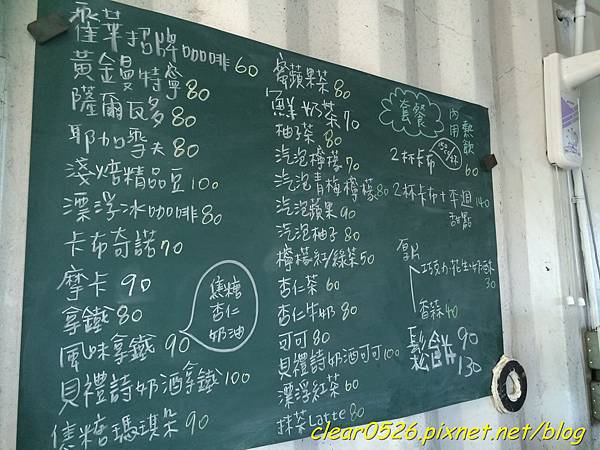 崔苹招牌咖啡60
黃金曼特寧80
薩爾瓦多80
耶加雪夫80
淺焙精品豆100
漂浮冰咖啡80
卡布奇諾70
摩卡 90
拿鐵 80
風味拿鐵 90
焦糖
杏仁
奶油
貝禮詩奶酒拿鐵100
焦糖瑪琪朵 90
蜜蘋果茶 80
鮮奶茶70
柚茶 80
汽泡檸檬70
汽泡青梅檸檬80
汽泡蘋果90
汽泡柚子80
檸檬紅/綠茶50
杏仁茶 60
杏仁牛奶 80
可可 80
貝禮詩奶酒可可100
漂浮紅茶 60
抹茶Latte 80
套餐
內用熱飲
2杯卡布
60
2杯卡布+
甜點
140
厚片
巧克力.花生.奶酥
30
香蒜 40
鬆餅 90
130
clear0526.pixnet.net/blog